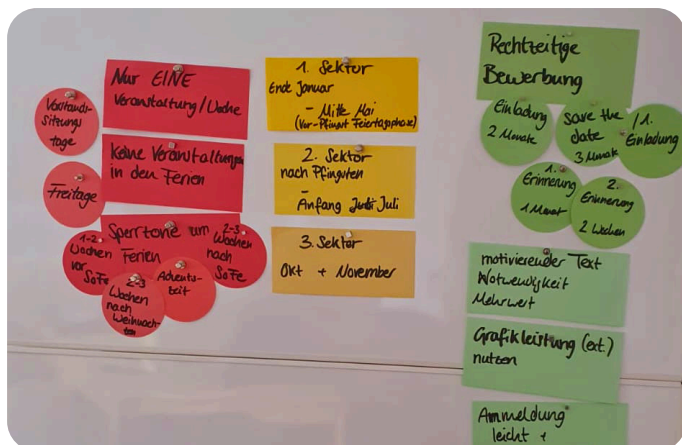 Vorstands-
sitzungs
tage
Freitage
Nur EINE
Veranstaltung/Woche
Keine Veranstaltungen
in den Ferien
Sperrzone um
Ferien
1-2
Wochen
vor
SoFe
2-3
Wochen
nach
Weihnach-
ten
Advents-
zeit
2-3
Wochen
nach
SoFe
1. Sektor
Ende Januar
- Mitte Mai
(Vor-Pfingst Feiertagsphase)
2. Sektor
nach Pfingsten
-
Anfang Juli
3. Sektor
Okt + November
Rechtzeitige
Bewerbung
Einladung
2 Monate
Save the
date
3 Monate
/1.
Einladung
1.
Erinnerung
1 Monat
2.
Erinnerung
2 Wochen
motivierender Text
Notwendigkeit
Mehrwert
Grafikleistung (ext.)
nutzen
Anmeldung
leicht +